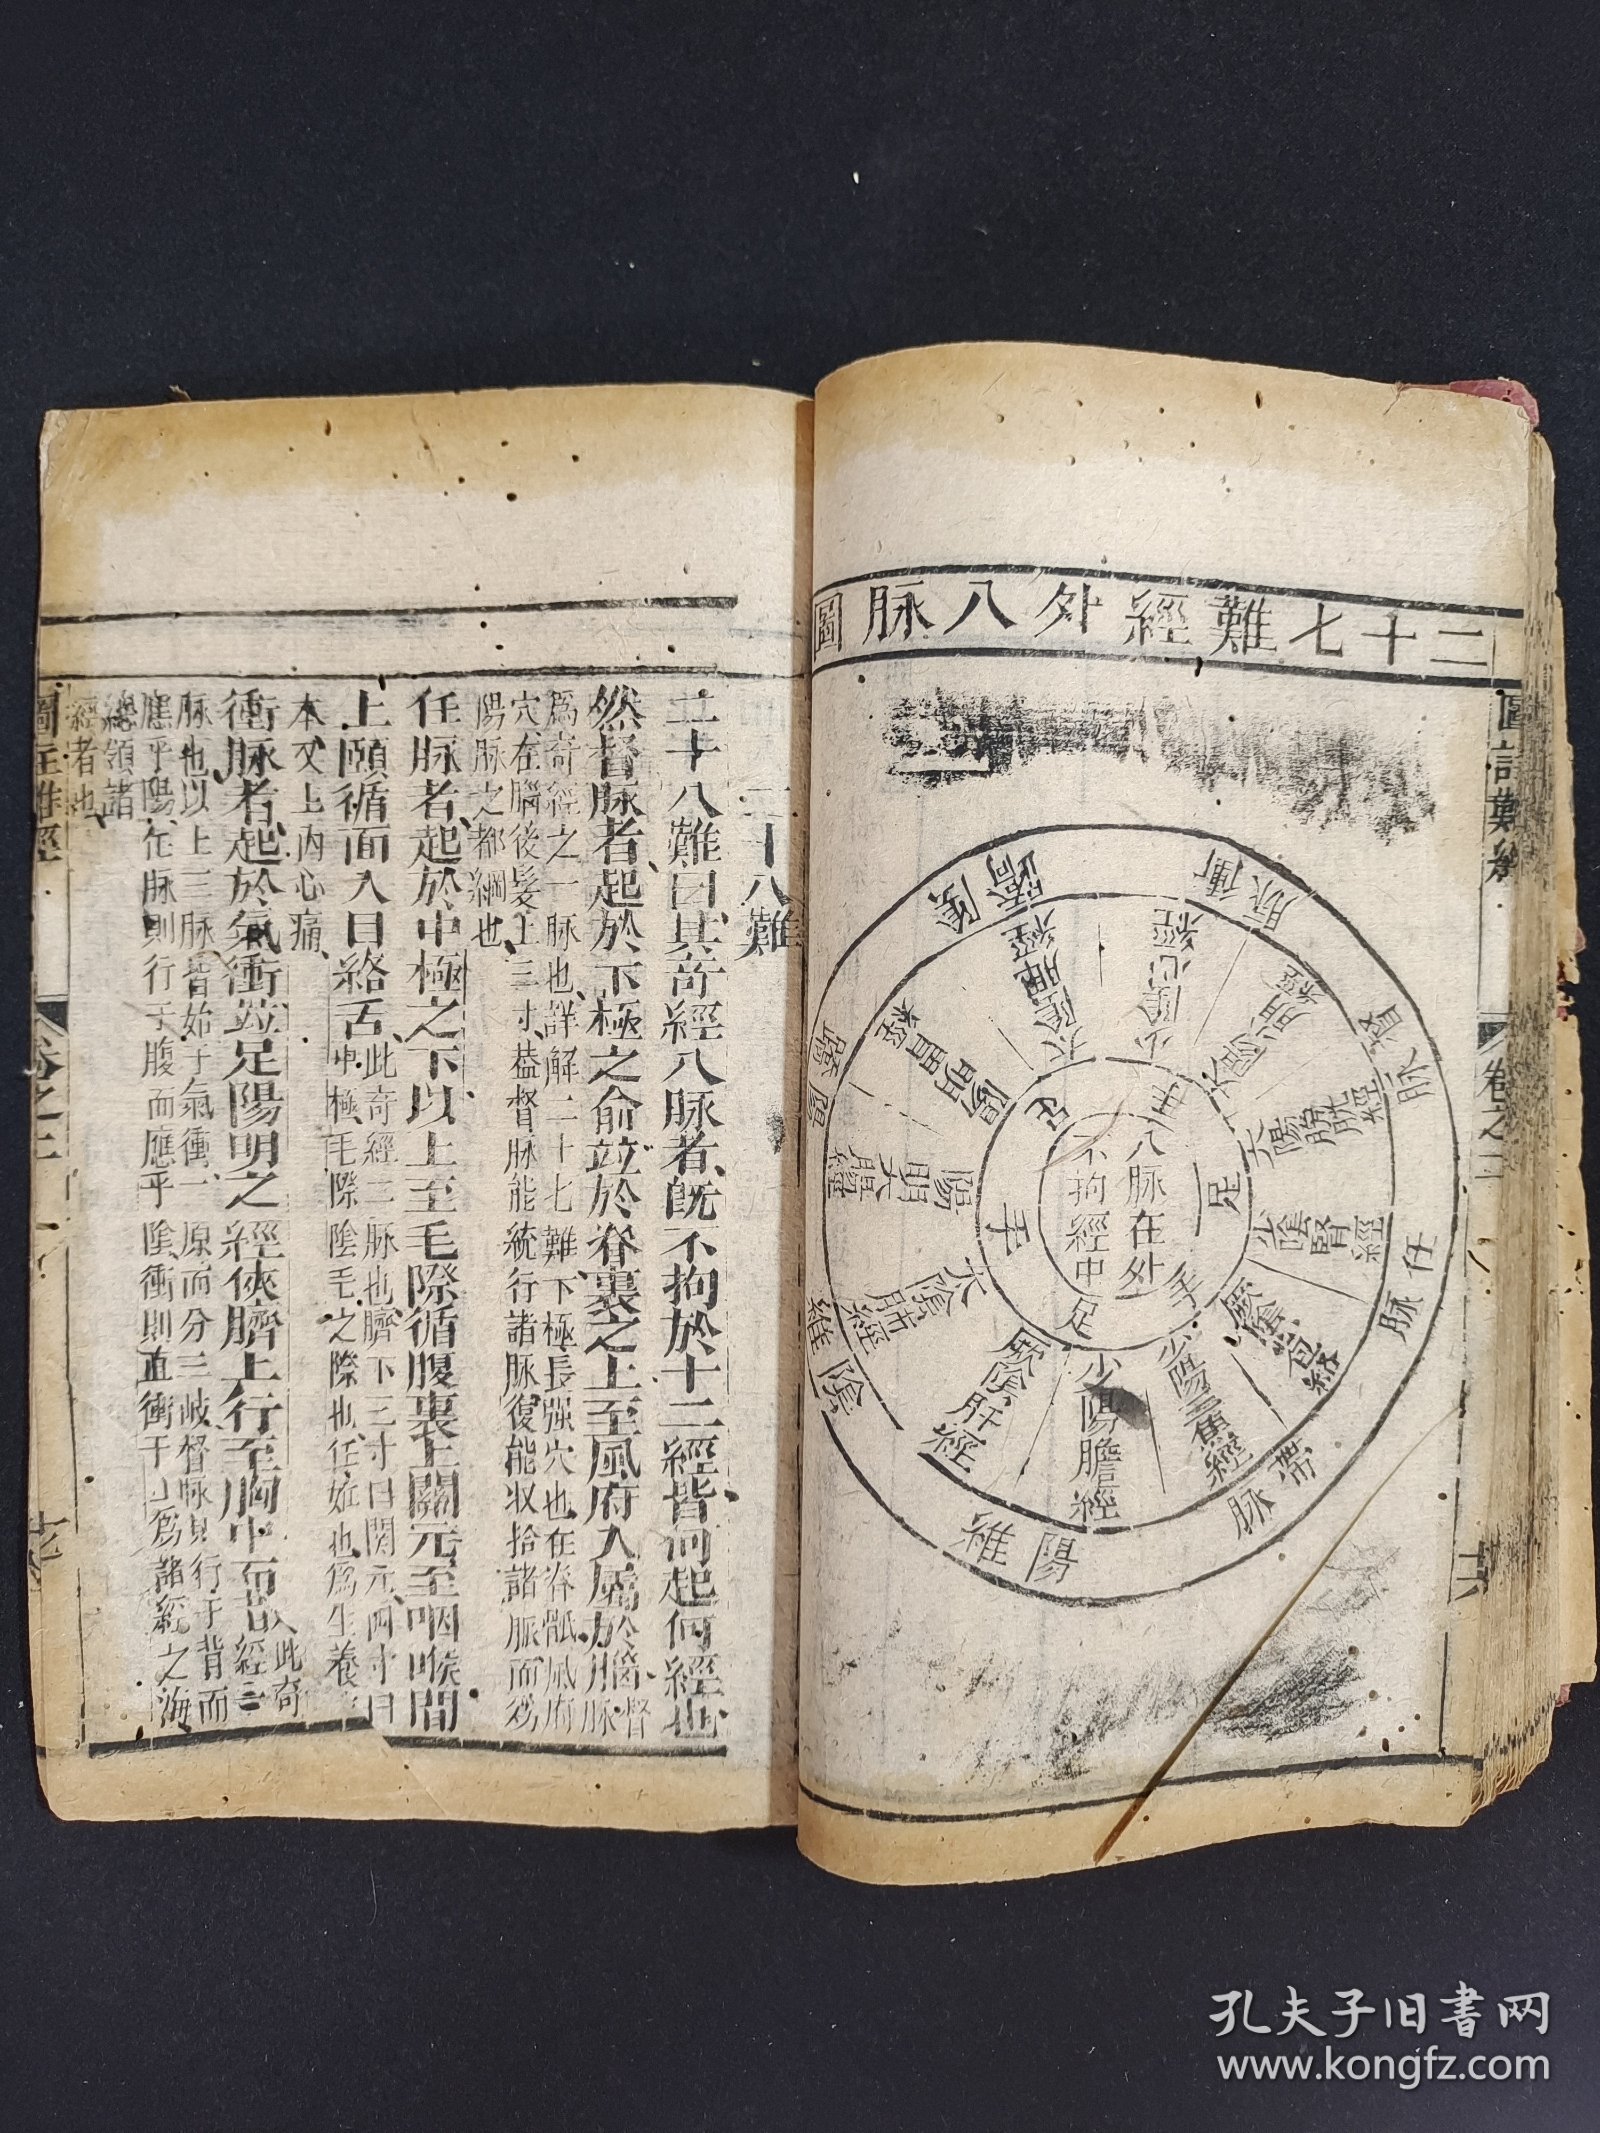 二十七難經外八脉圖
八脉在外
不拘經中
手
足
手
足
手
足
少陰心經
太陽小腸經
太陽膀胱經
少陰腎經
少陽三焦經
少陽膽經
厥陰肝經
太陰肺經
陽明大腸經
陽明胃經
太陰脾經
衝脉
督脉
任脉
帶脉
陽維
陰維
陽蹻
陰蹻
卷之二
十六
二十八難
二十八難曰其竒經八脉者既不拘於十二經皆何起何經也
然督脉者起於下極之俞並於脊裏之上至風府入屬於腦督脉
爲奇經之一脉也詳解二十七難下極長强穴也在脊骶風府
穴在腦後髮上三寸葢督脉能統行諸脉復能收拾諸脈而爲
陽脉之都綱也
任脉者起於中極之下以上至毛際循腹裏上關元至咽喉間
上頤循面入目絡舌此奇經二脉也臍下三寸曰関元四寸曰
中極毛際陰毛之際也任妊也爲生養
本又上内心痛
衝脉者起於氣衝並足陽明之經俠臍上行至胸中而散此奇經三
脉也以上三脉皆始于氣衝一原而分三岐督脉則行于背而
應乎陽任脉則行于腹而應乎陰衝則直衝于上爲諸經之海
總領諸
經者也
圖註難經
卷之三
孔夫子旧书网
www.kongfz.com